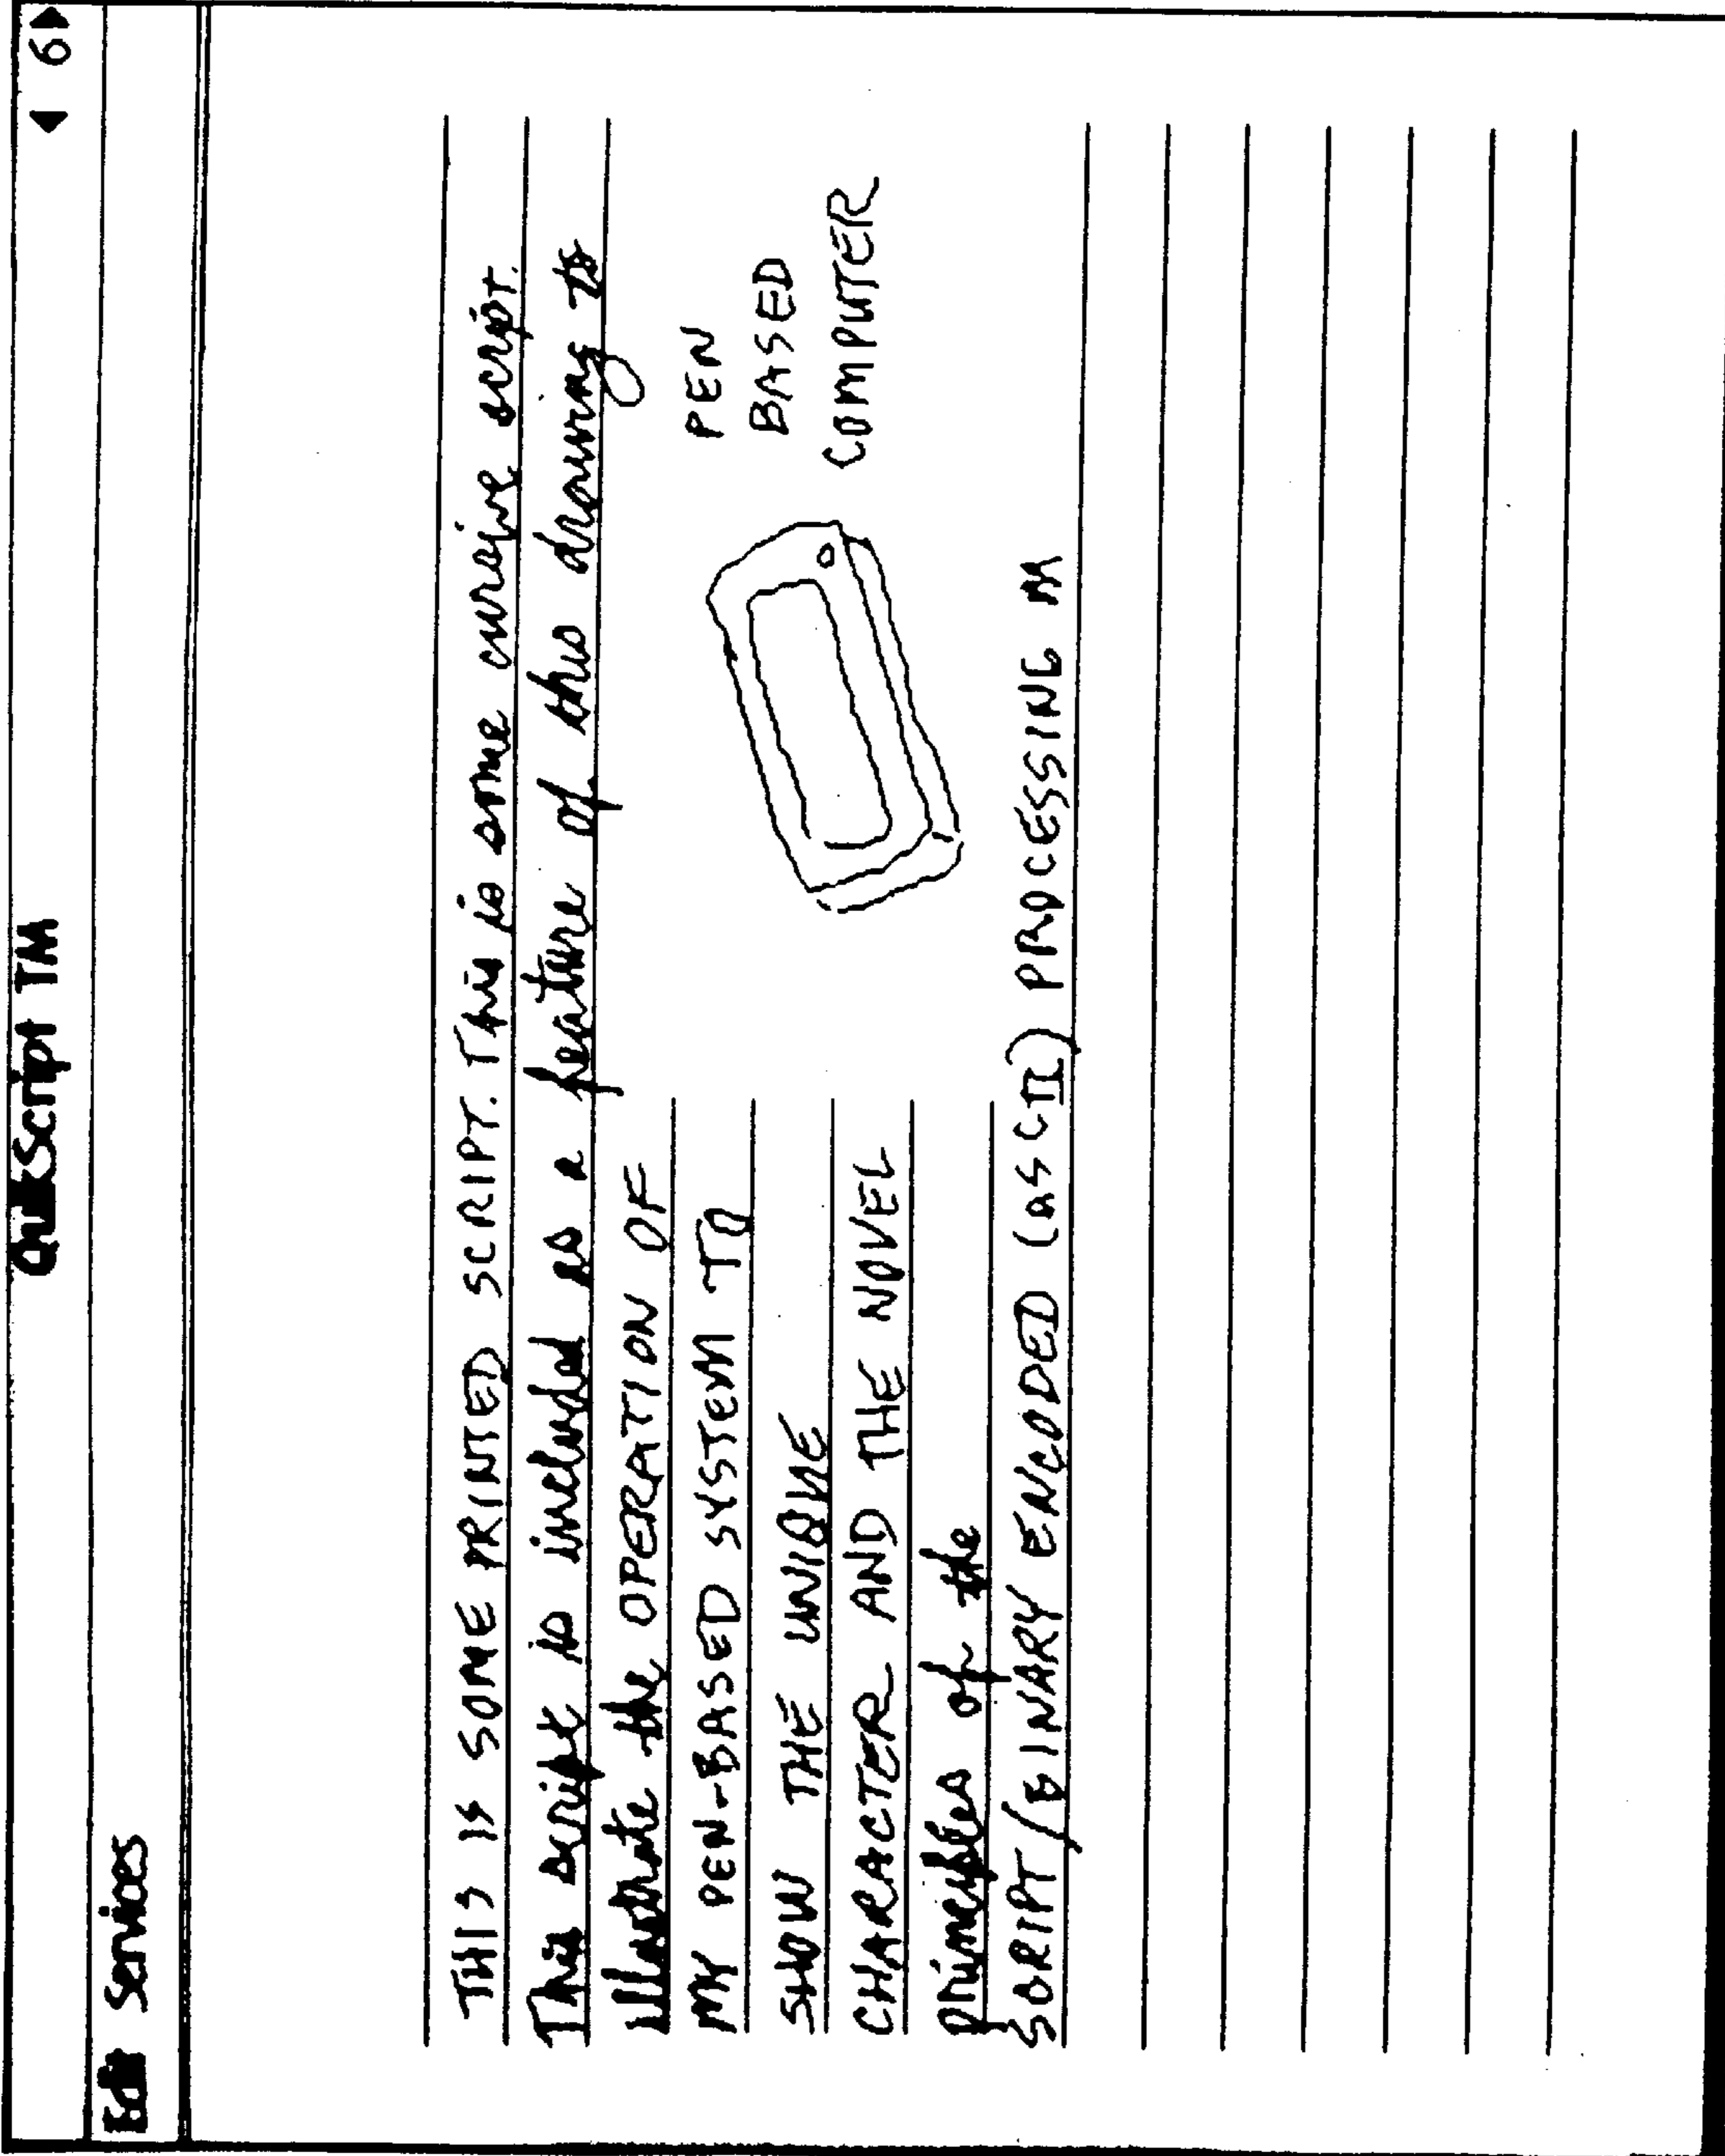 QuikScript TM
◀ 6▶
Edit Services
THIS IS SOME PRINTED SCRIPT. This is some cursive script.
This script is included as a feature of this drawing to
illustrate the OPERATION OF
MY PEN-BASED SYSTEM TO
SHOW THE UNIQUE
CHARACTER AND THE NOVEL
principles of the
SCRIPT/BINARY ENCODED (ASCII) PROCESSING M
PEN
BASED
COMPUTER